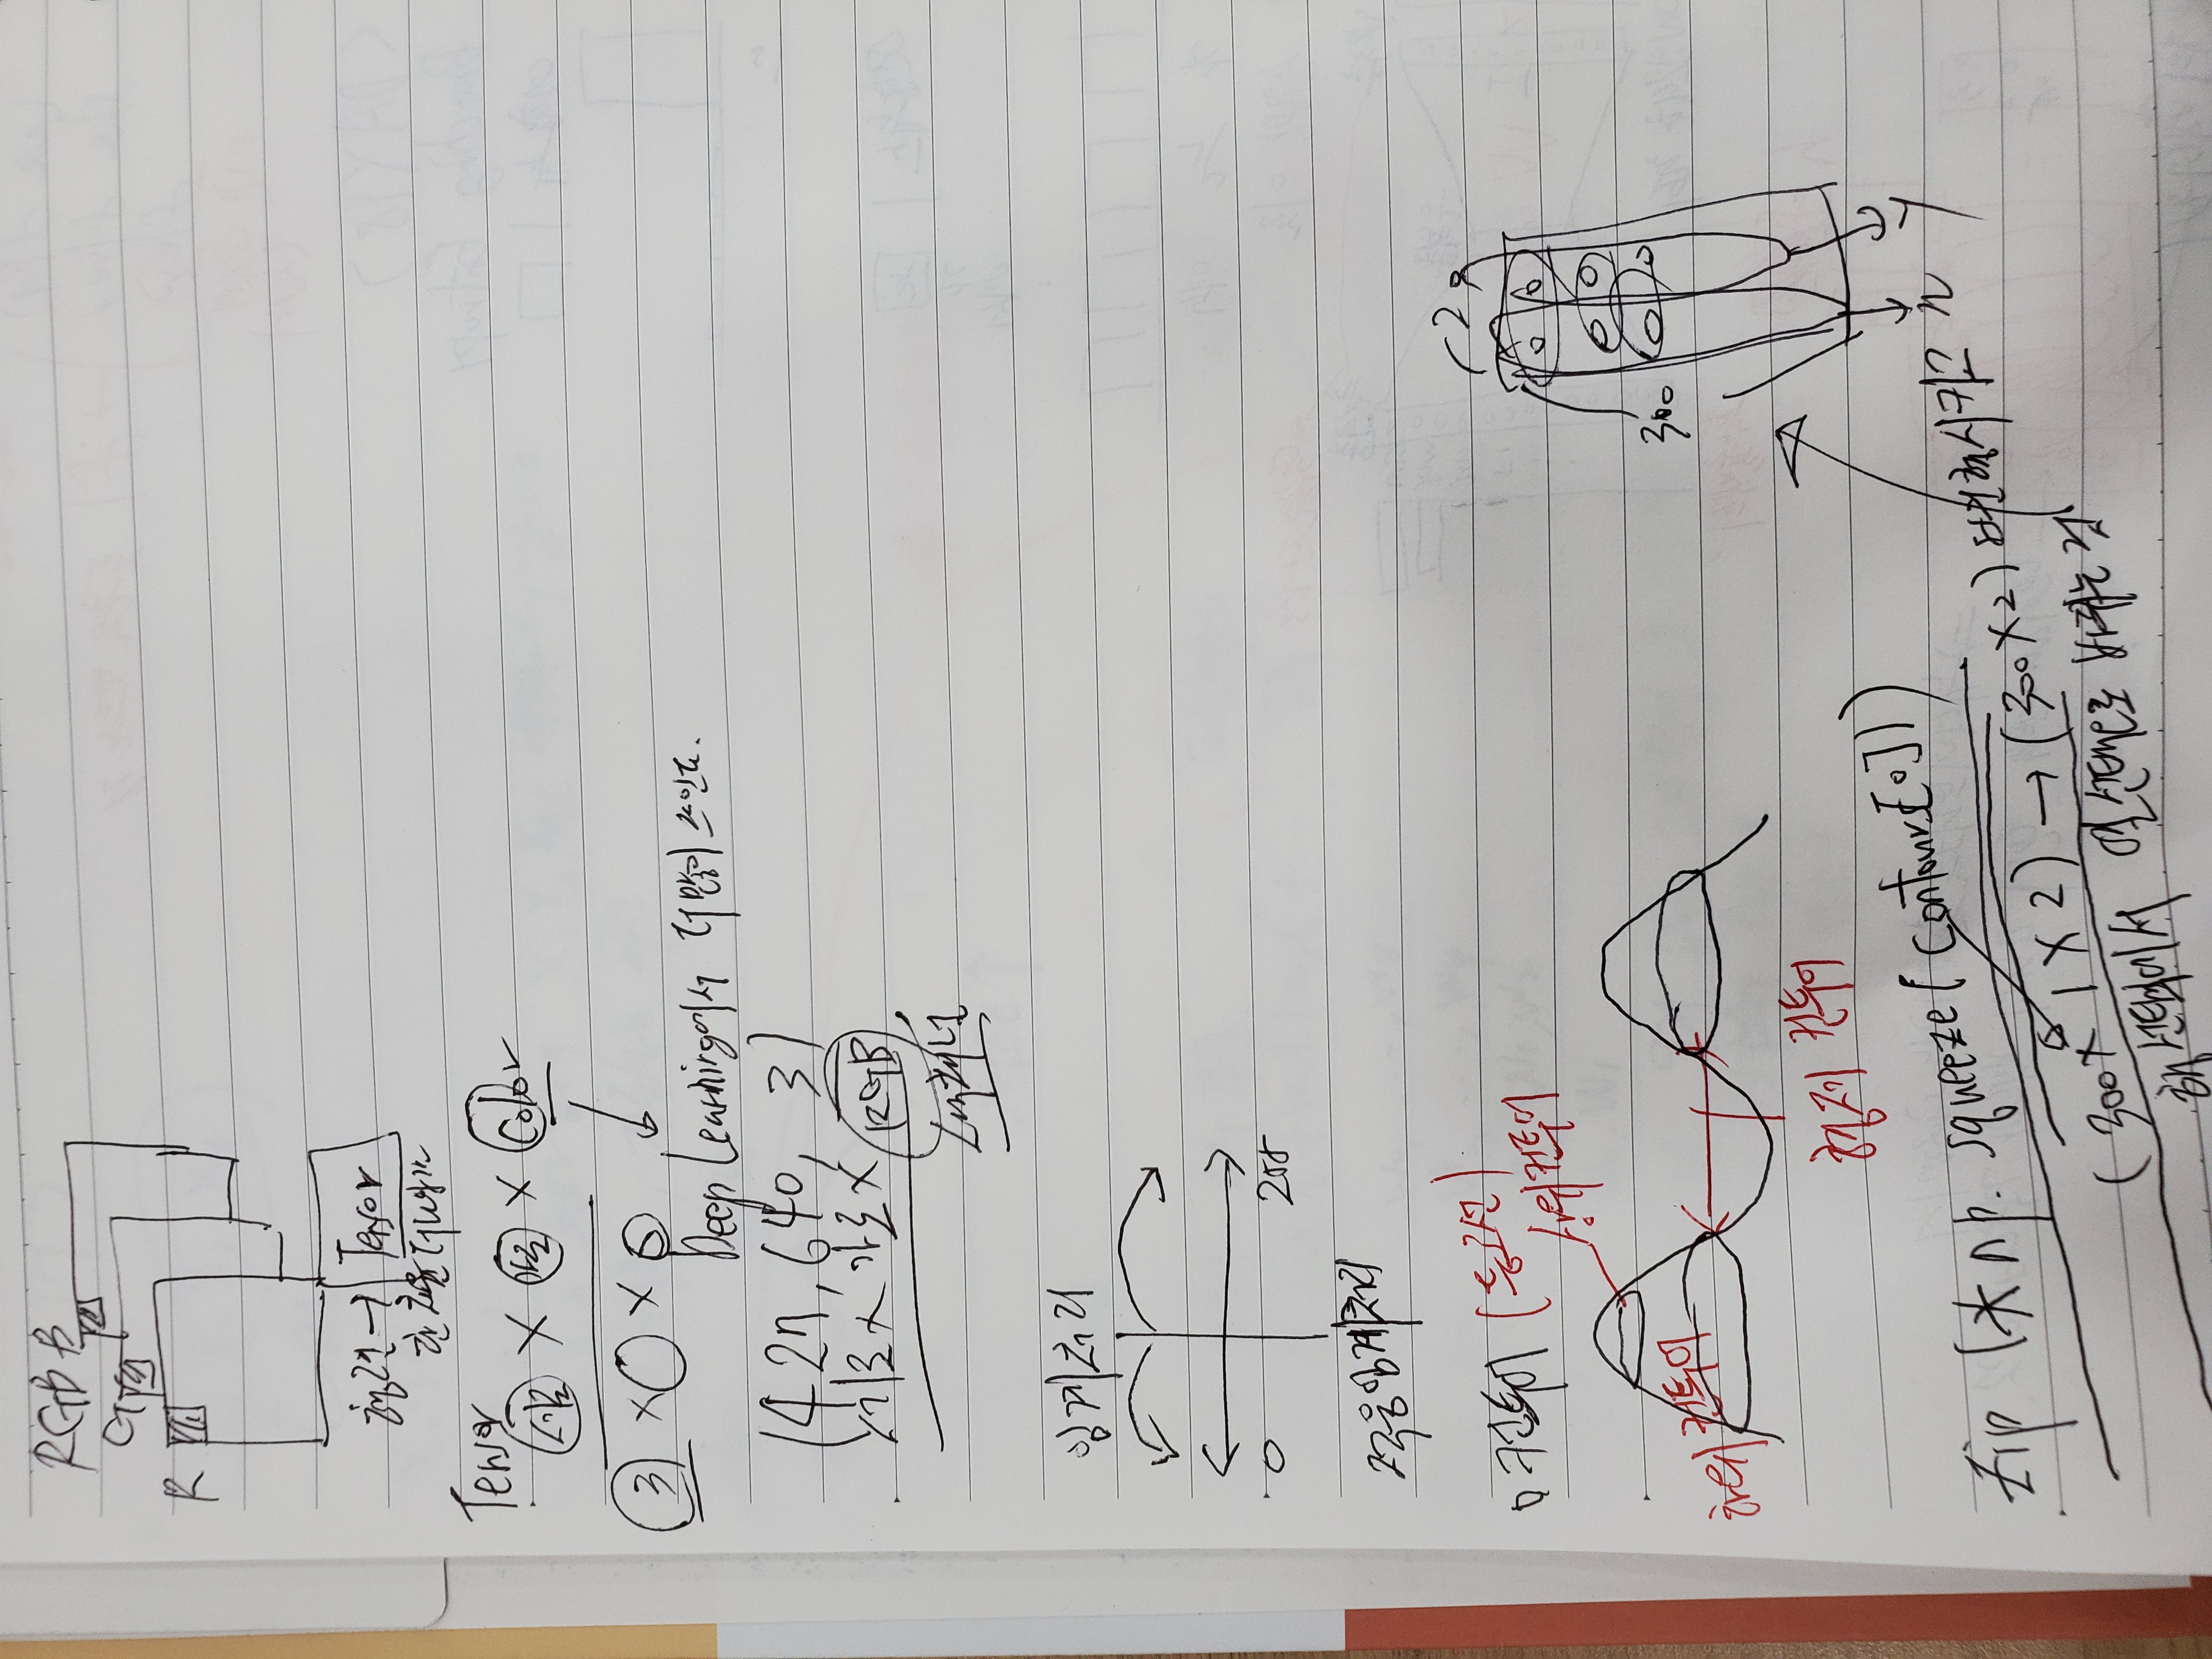 RGB B
G
R
행렬 → Tensor
한 차원 더 나아간
Tensor
세로 X 가로 X Color
3 X O X O
Deep Learning에서 더 많이 쓰인다.
(427, 640, 3)
세로 x 가로 x RGB
색채널
임계처리
0 255
적응임계처리
컨투어 (등고선)
상위컨투어
하위 컨투어
형제 컨투어
(2)
300
x y
zip (* np. squeeze( contours[0]))
(300 X 1 X 2) → (300 X 2) 변형시키고
행 선택에서 열 선택으로 바꾸는 것